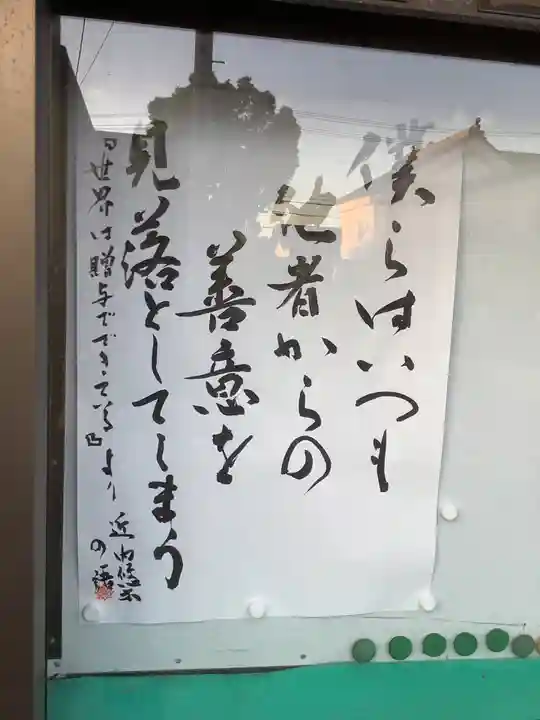 僕らはいつも
他者からの
善意を
見落としてしまう
『世界は贈与でできている』より 近内悠太の語